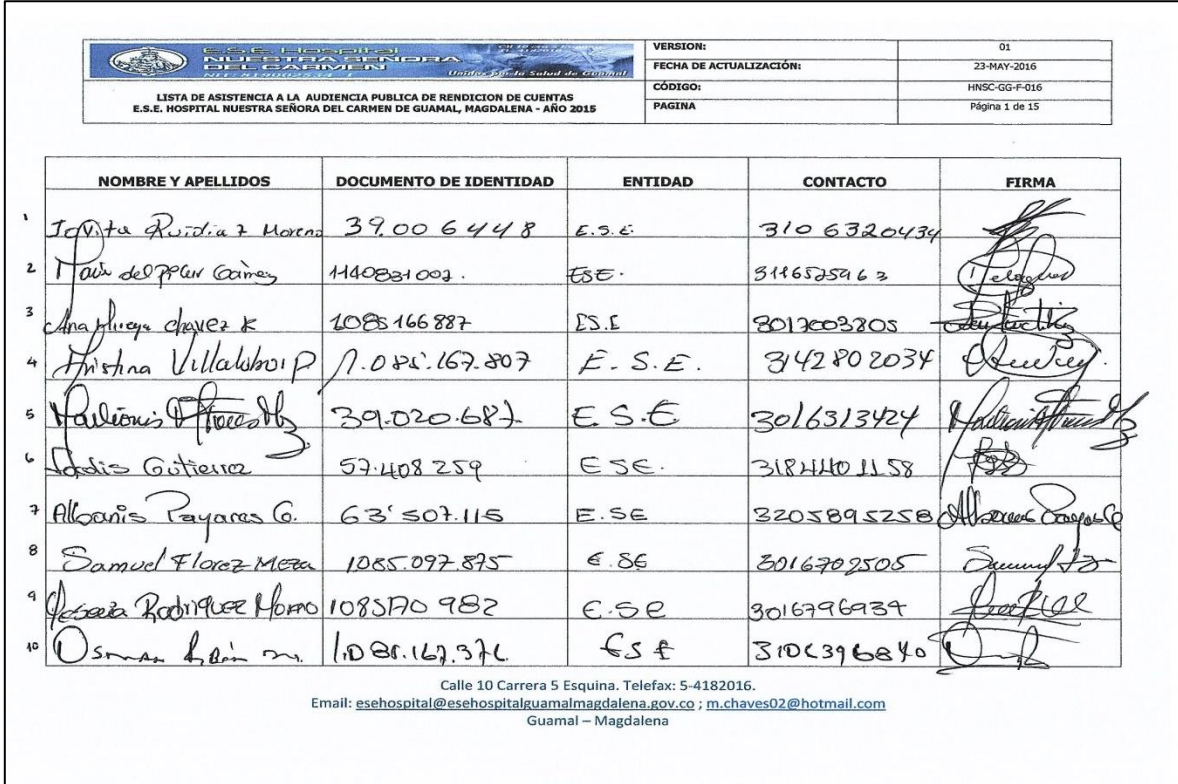 E.S.E. Hospital
NUESTRA SEÑORA
DEL CARMEN
NIT: 819002534-1
Unidos por la Salud de Guamal
LISTA DE ASISTENCIA A LA AUDIENCIA PUBLICA DE RENDICION DE CUENTAS
E.S.E. HOSPITAL NUESTRA SEÑORA DEL CARMEN DE GUAMAL, MAGDALENA - AÑO 2015
VERSION: 01
FECHA DE ACTUALIZACIÓN: 23-MAY-2016
CÓDIGO: HNSC-GG-F-016
PAGINA Página 1 de 15
NOMBRE Y APELLIDOS DOCUMENTO DE IDENTIDAD ENTIDAD CONTACTO FIRMA
1 Moreno 39.006448 E.S.E. 310 6320434
2 del Pilar 1140831002. ESE. 3116525963
3 Ana chavez K 1085166887 ES.E 3017003805
4 Villalobos P 1.085.167.807 E.S.E. 3142802034
5 39.020.687 E.S.E 3016313424
6 Gutierrez 57.408259 ESE. 3184401158
7 Albanis Payares G. 63'507.115 E.SE 3205895258
8 Samuel Florez Meza 1085.097.875 E.SE 3016702505
9 Rodriguez Moreno 1085170982 E.SE 3016796934
10 1.085.167.376 ESE 3106396840
Calle 10 Carrera 5 Esquina. Telefax: 5-4182016.
Email: esehospital@esehospitalguamalmagdalena.gov.co ; m.chaves02@hotmail.com
Guamal – Magdalena